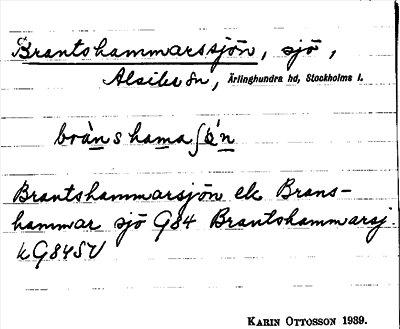 Brantshammarssjön, sjö,
Alsike sn, Ärlinghundra hd, Stockholms l.
bràns hama ʃö́n
Brantshammarsjön ek Brans-
hammar sjö G84 Brantshammarsj.
kG84SV
KARIN OTTOSSON 1939.